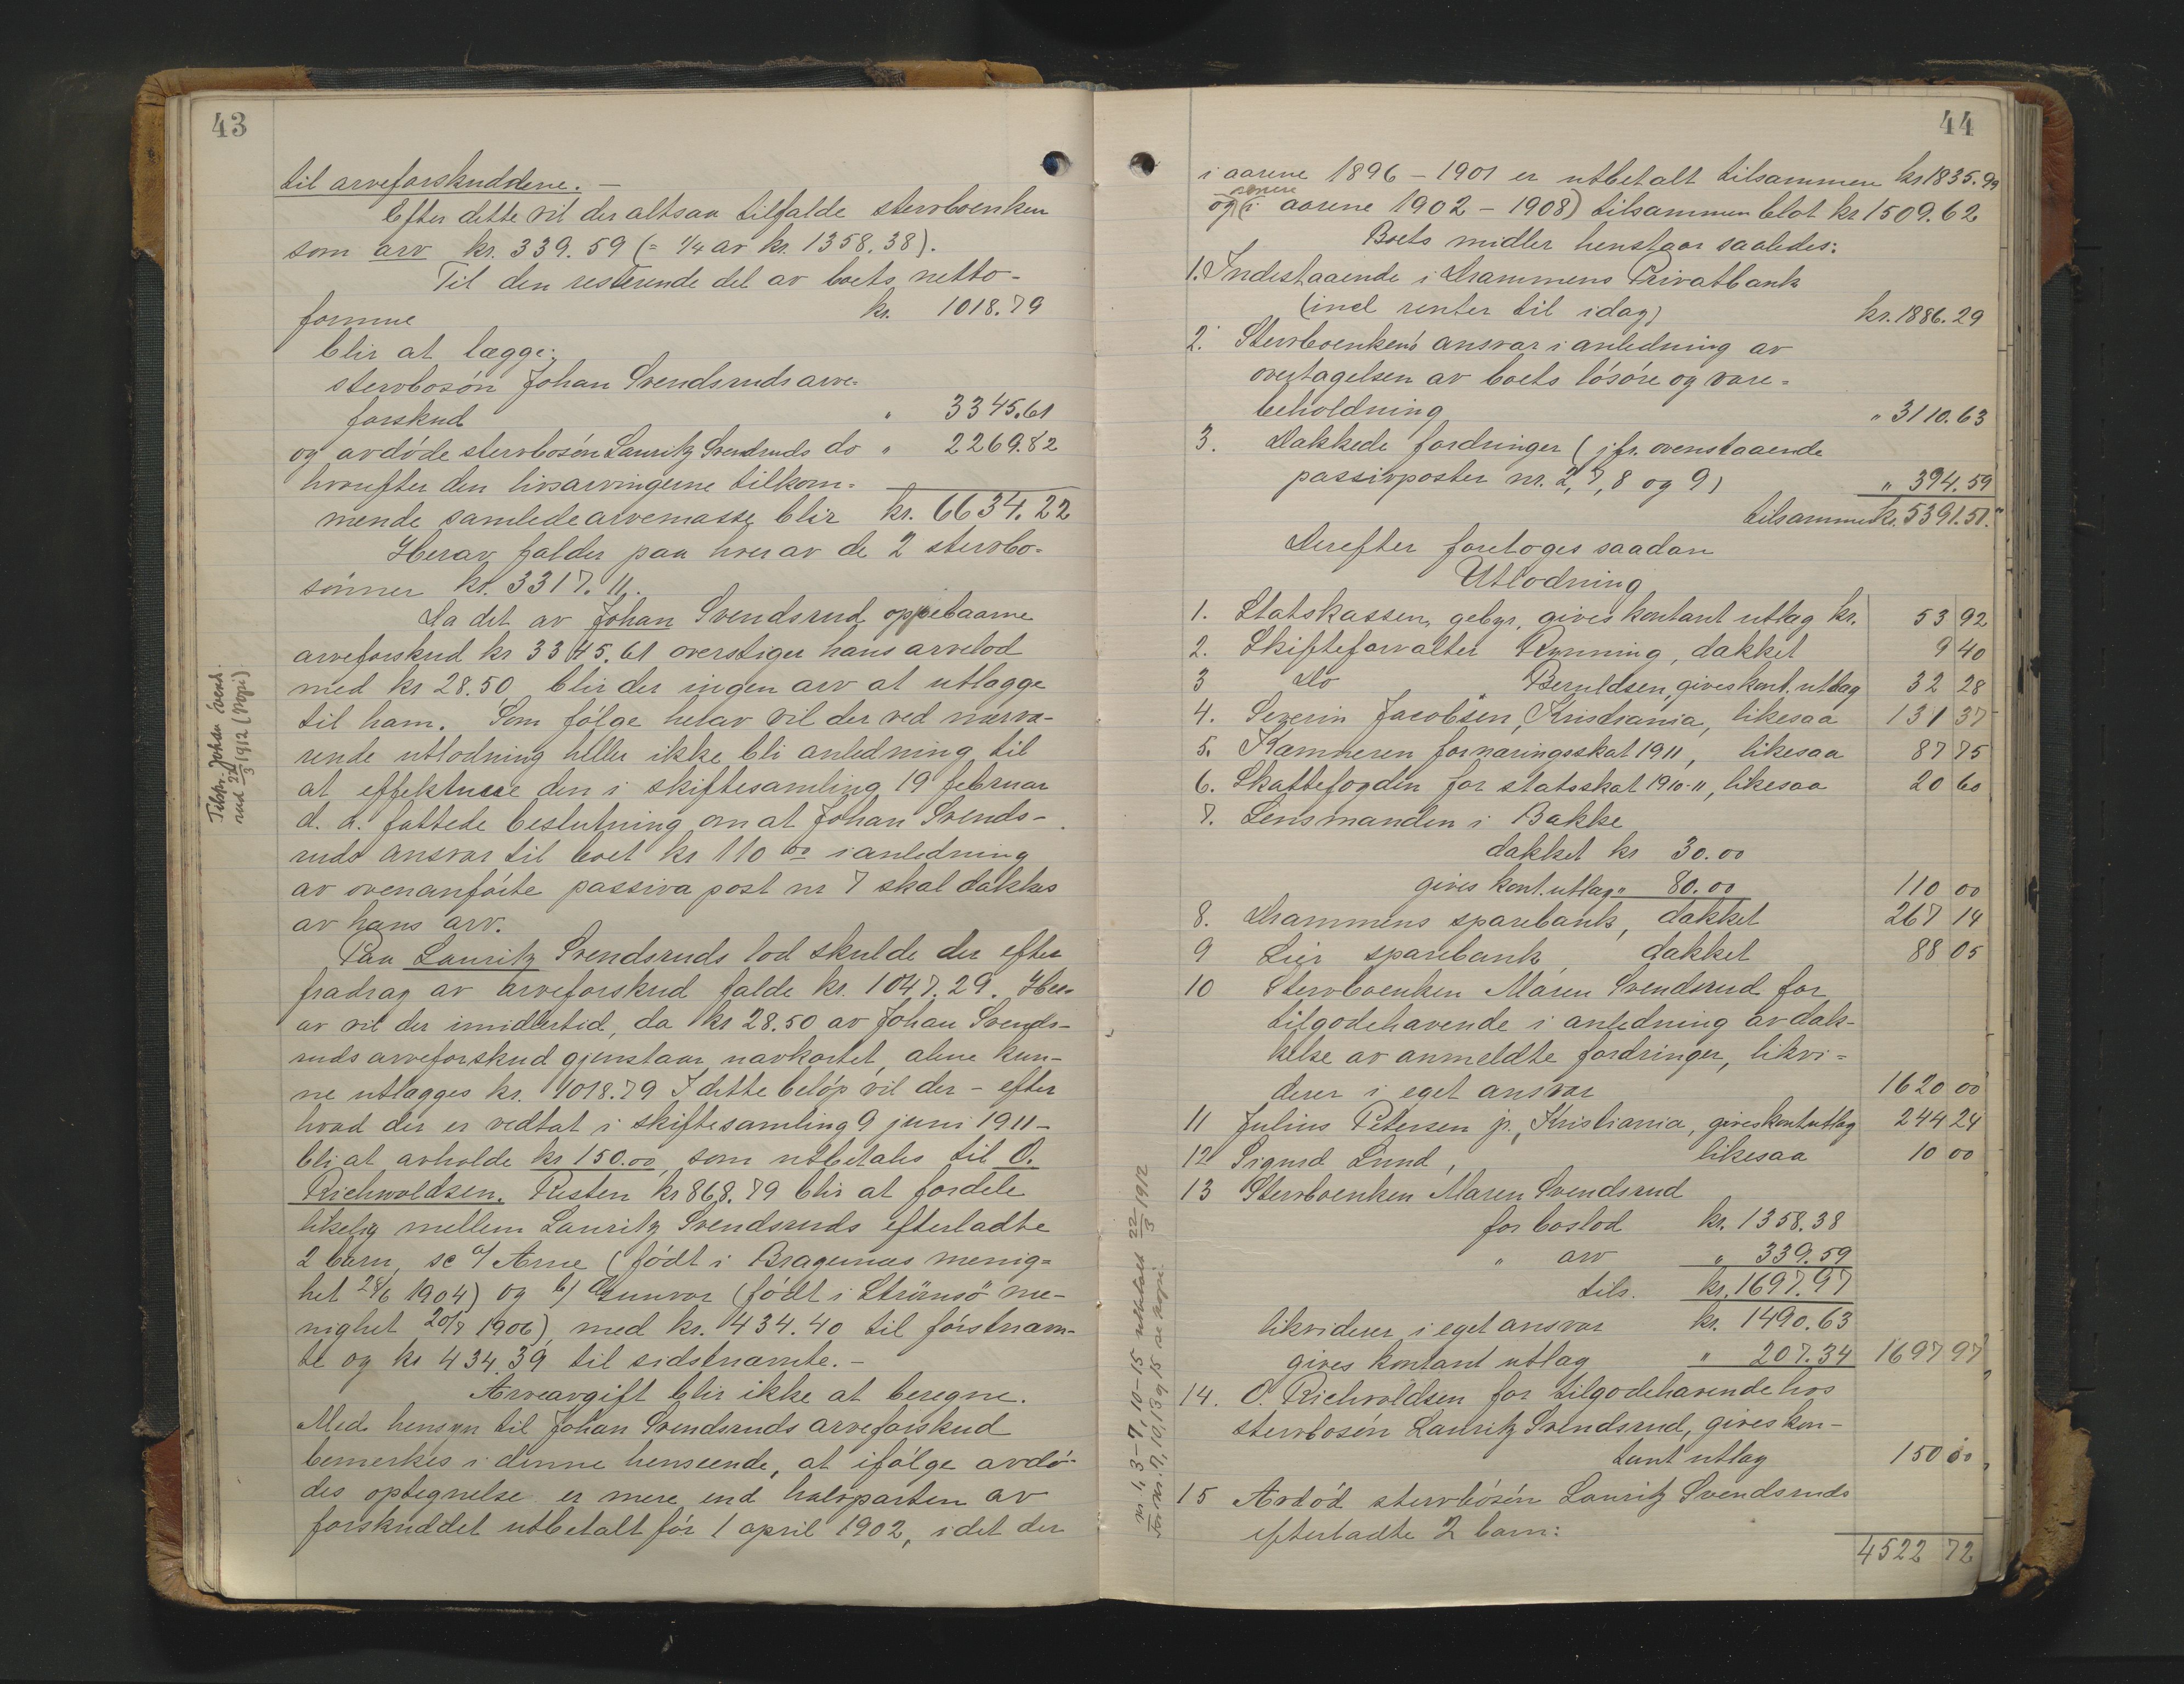 43
til arveforskuddene. —
Efter dette vil der altsaa tilfalde stervboenken
som arv kr. 339.59 (= 1/4 av kr. 1358.38).
Til den resterende del av boets netto-
formue kr. 1018.79
blir at lægge:
stervbosön Johan Svendsruds arve-
forskud " 3345.61
og avdöde stervbosön Lauritz Svendsruds do " 2269.82
hvorefter den livsarvingerne tilkom-
mende samlede arvemasse blir kr. 6634.22
Herav falder paa hver av de 2 stervbo-
sönner kr. 3317.11.
Da det av Johan Svendsrud oppebaarne
arveforskud kr 3345.61 overstiger hans arvelod
med kr 28.50, blir der ingen arv at utlægge
til ham. Som fölge herav vil der ved nærvæ-
rende utlodning heller ikke bli anledning til
at effektuere den i skiftesamling 19 februar
d. a. fattede beslutning om at Johan Svends-
ruds ansvar til boet kr 110 00 i anledning
av ovenanförte passiva post nr 7 skal dækkes
av hans arv.
Paa Lauritz Svendsruds lod skulde der efter
fradrag av arveforskud falde kr. 1047.29. Her-
av vil der imidlertid, da kr 28.50 av Johan Svends-
ruds arveforskud gjenstaar uavkortet, alene kun-
ne utlægges kr. 1018.79 I dette belöp vil der - efter
hvad der er vedtat i skiftesamling 9 juni 1911 -
bli at avholde kr 150.00, som utbetales til O.
Richvoldsen. Resten kr 868.79 blir at fordele
likelig mellem Lauritz Svendsruds efterladte
2 barn, sc a/ Arne (födt i Bragernæs menig-
het 28/6 1904) og b/ Gunvor (födt i Strömsö me-
nighet 20/7 1906), med kr. 434.40 til förstnævn-
te og kr 434.39 til sidstnævnte. —
Arveavgift blir ikke at beregne.
Med hensyn til Johan Svendsruds arveforskud
bemerkes i denne henseende, at ifölge avdö-
des optegnelse er mere end halvparten av
forskuddet utbetalt för 1 april 1902, idet der
Tilskr. Johan Svends-
rud 22/3 1912 (Kopi)
44
i aarene 1896 - 1901 er utbetalt tilsammen kr 1835.99
og (i senere aarene 1902 - 1908) tilsammen blot kr 1509.62
Boets midler henstaar saaledes:
1. Indestaaende i Drammens Privatbank
(incl renter til idag) kr. 1886.29
2. Stervboenkens ansvar i anledning av
overtagelsen av boets lösöre og vare-
beholdning " 3110.63
3. Dækkede fordringer (jfr. ovenstaaende
passivposter nr. 2, 7, 8 og 9) " 394.59
tilsammen kr. 5391.51.
Derefter foretoges saadan
Utlodning
1. Statskassen, gebyr, gives kontant utlæg kr. 53 92
2. Skifteforvalter Rynning, dækket 9 40
3 Do Beruldsen, gives kont. utlæg 32 28
4. Severin Jacobsen, Kristiania, likesaa 131 37
5. Kæmneren for næringsskat 1911, likesaa 87 75
6. Skattefogden for statsskat 1910-11, likesaa 20 60
7. Lensmanden i Bakke
dækket kr 30.00
gives kont. utlæg " 80.00 110 00
8. Drammens sparebank, dækket 267 14
9 Lier sparebank, dækket 88 05
10 Stervboenken Maren Svendsrud for
tilgodehavende i anledning av dæk-
kelse av anmeldte fordringer, likvi-
derer i eget ansvar 1620 00
11 Julius Petersen jr., Kristiania, gives kont utlæg 244 24
12 Sigurd Lund, likesaa 10 00
13 Stervboenken Maren Svendsrud
for boslod kr. 1358.38
" arv " 339.59
tils. kr. 1697.97
likviderer i eget ansvar kr. 1490.63
gives kontant utlæg " 207.34 1697 97
14. O. Richvoldsen for tilgodehavende hos
stervbosön Lauritz Svendsrud, gives kon-
tant utlæg 150 00
15 Avdöd stervbosön Lauritz Svendsruds
efterladte 2 barn:
4522 72
nr 1, 3-7, 10-15 utbetalt 22/3 1912
For nr. 7, 10, 13 og 15 se kopi.